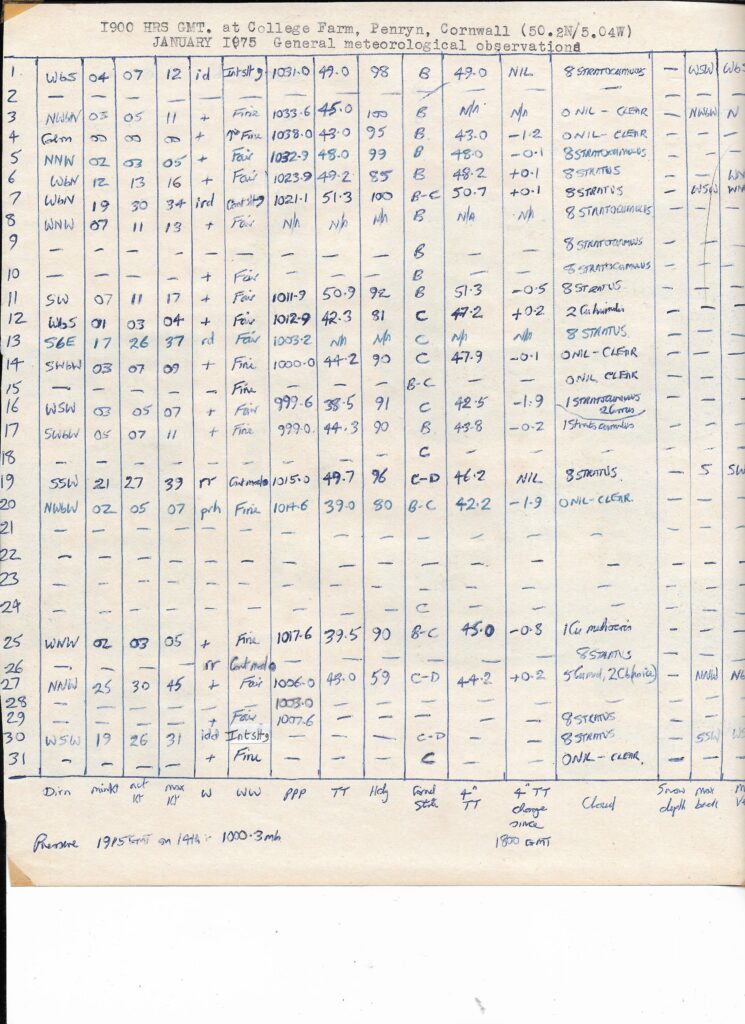 1900 HRS GMT. at College Farm, Penryn, Cornwall (50.2N/5.04W)
JANUARY 1975 General meteorological observations
1 WbS 04 07 12 id Intsltg 1031.0 49.0 98 B 49.0 NIL 8 STRATOCUMULUS — WSW WbS
2 — — — — — — — — — — — — —
3 NWbN 03 05 11 + Fine 1033.6 45.0 100 B N/A N/A 0 NIL - CLEAR — NWbW N
4 Calm 00 00 00 + Fine 1038.0 43.0 95 B 43.0 -1.2 0 NIL - CLEAR —
5 NNW 02 03 05 + Fair 1032.9 48.0 99 B 48.0 -0.1 8 STRATOCUMULUS — —
6 WbN 12 13 16 + Fair 1023.9 49.2 85 B 48.2 +0.1 8 STRATUS —
7 WbN 19 30 34 ird Contsltg 1021.1 51.3 100 B-C 50.7 +0.1 8 STRATUS — WSW
8 WNW 07 11 13 + Fair N/A N/A N/A B N/A N/A 8 STRATOCUMULUS —
9 — — — — — — — — — B — — 8 STRATOCUMULUS — —
10 — — — — + Fair — — — B — — 8 STRATOCUMULUS — —
11 SW 07 11 17 + Fair 1011.9 50.9 92 B 51.3 -0.5 8 STRATUS — —
12 WbS 01 03 04 + Fair 1012.9 42.3 81 C 47.2 +0.2 2 Cu humulus — —
13 SbE 17 26 37 rd Fair 1003.2 N/A N/A C N/A N/A 8 STRATUS — —
14 SWbW 03 07 09 + Fine 1000.0 44.2 90 C 47.9 -0.1 0 NIL - CLEAR — —
15 — — — — — Fine — — — B-C — — 0 NIL CLEAR — —
16 WSW 03 05 07 + Fair 999.6 38.5 91 C 42.5 -1.9 1 STRATOCUMULUS 2 Cirrus — —
17 SWbW 05 07 11 + Fine 999.0 44.3 90 B 43.8 -0.2 1 Stratocumulus — —
18 — — — — — — — — — C — — — — —
19 SSW 21 27 39 rr Cont mod 1015.0 49.7 96 C-D 46.2 NIL 8 STRATUS — S SW
20 NWbW 02 05 07 prh Fine 1014.6 39.0 80 B-C 42.2 -1.9 0 NIL - CLEAR — —
21 — — — — — — — — — — — — — — —
22 — — — — — — — — — — — — — — —
23 — — — — — — — — — — — — — — —
24 — — — — — — — — — C — — — — —
25 WNW 02 03 05 + Fine 1017.6 39.5 90 B-C 45.0 -0.8 1 Cu — —
26 — — — — rr Cont mod — — — — — — 8 STRATUS — —
27 NNW 25 30 45 + Fair 1006.0 43.0 59 C-D 44.2 +0.2 — NNW
28 — — — — — — 1003.0 — — — — — — — —
29 — — — — + Fair 1007.6 — — — — — 8 STRATUS — —
30 WSW 19 26 31 idd Intsltg — — — C-D — — 8 STRATUS — SSW
31 — — — — + Fine — — — C — — 0 NIL - CLEAR. — —
Dirn minkt act Kt max Kt W WW PPP TT Hdy Grnd State 4" TT 4" TT change since 1800 GMT Cloud Snow depth max back
Pressure 1915 GMT on 14th: 1000.3mb